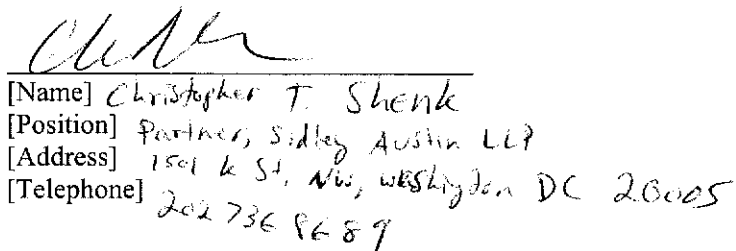 [Name] Christopher T. Shenk
[Position] Partner, Sidley Austin LLP
[Address] 1501 K St, NW, Washington DC 20005
[Telephone] 202 736 8689